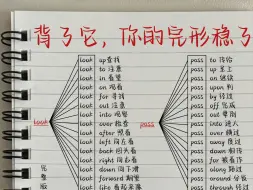 背了它，你的完形稳了
look up查找
look to 注意
look in 看望
look on 观看
look for 寻找
look out 注意
look into 观察
look over 检查
look after 照看
look left 向左看
look back 回头看
look right 向右看
look down 向下看
look forward 期望
look like 看起来像
look
pass to 传给
pass up
pass on 继续
pass upon 判
pass by 经过
pass off 完成
pass out
pass into 进入
pass over
pass away 度过
pass down 相传
pass for 被看作
pass along 路过
pass around 分发
pass through
pass
完整版